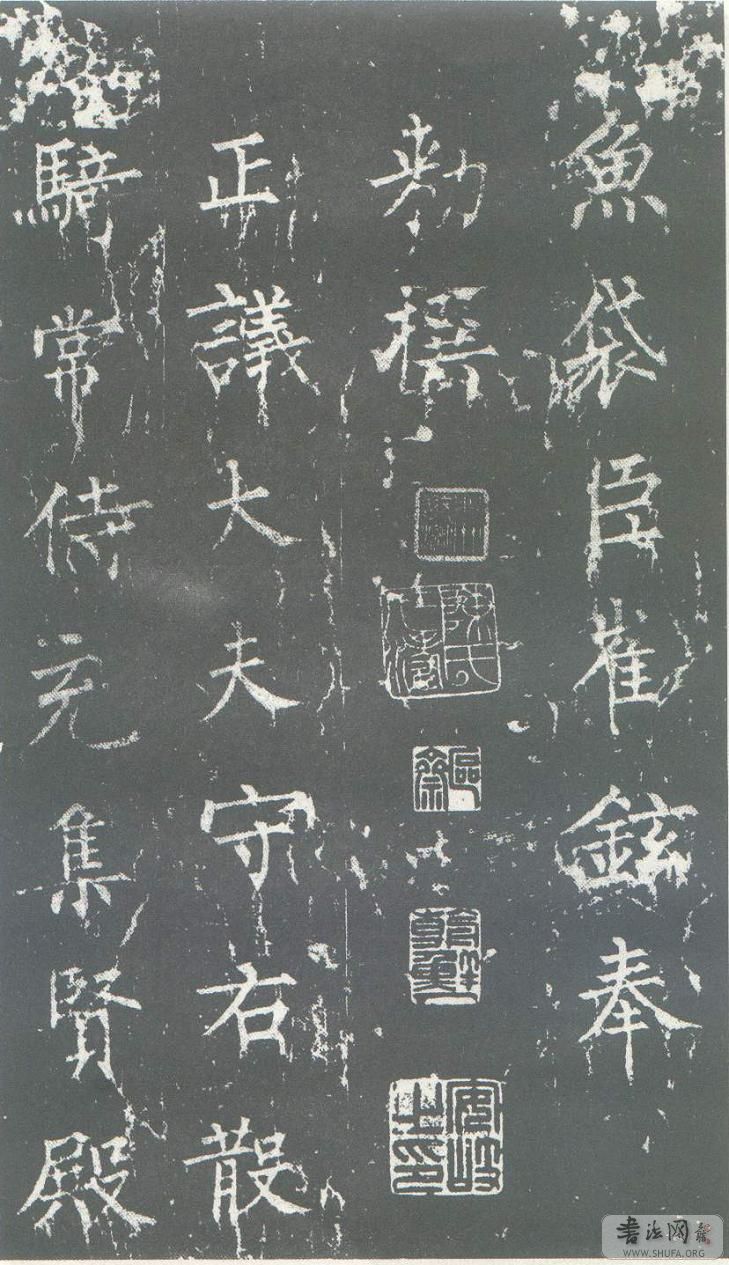 魚袋臣崔鉉奉
勑撰
正議大夫守右散
騎常侍充集賢殿
书法网
WWW.SHUFA.ORG